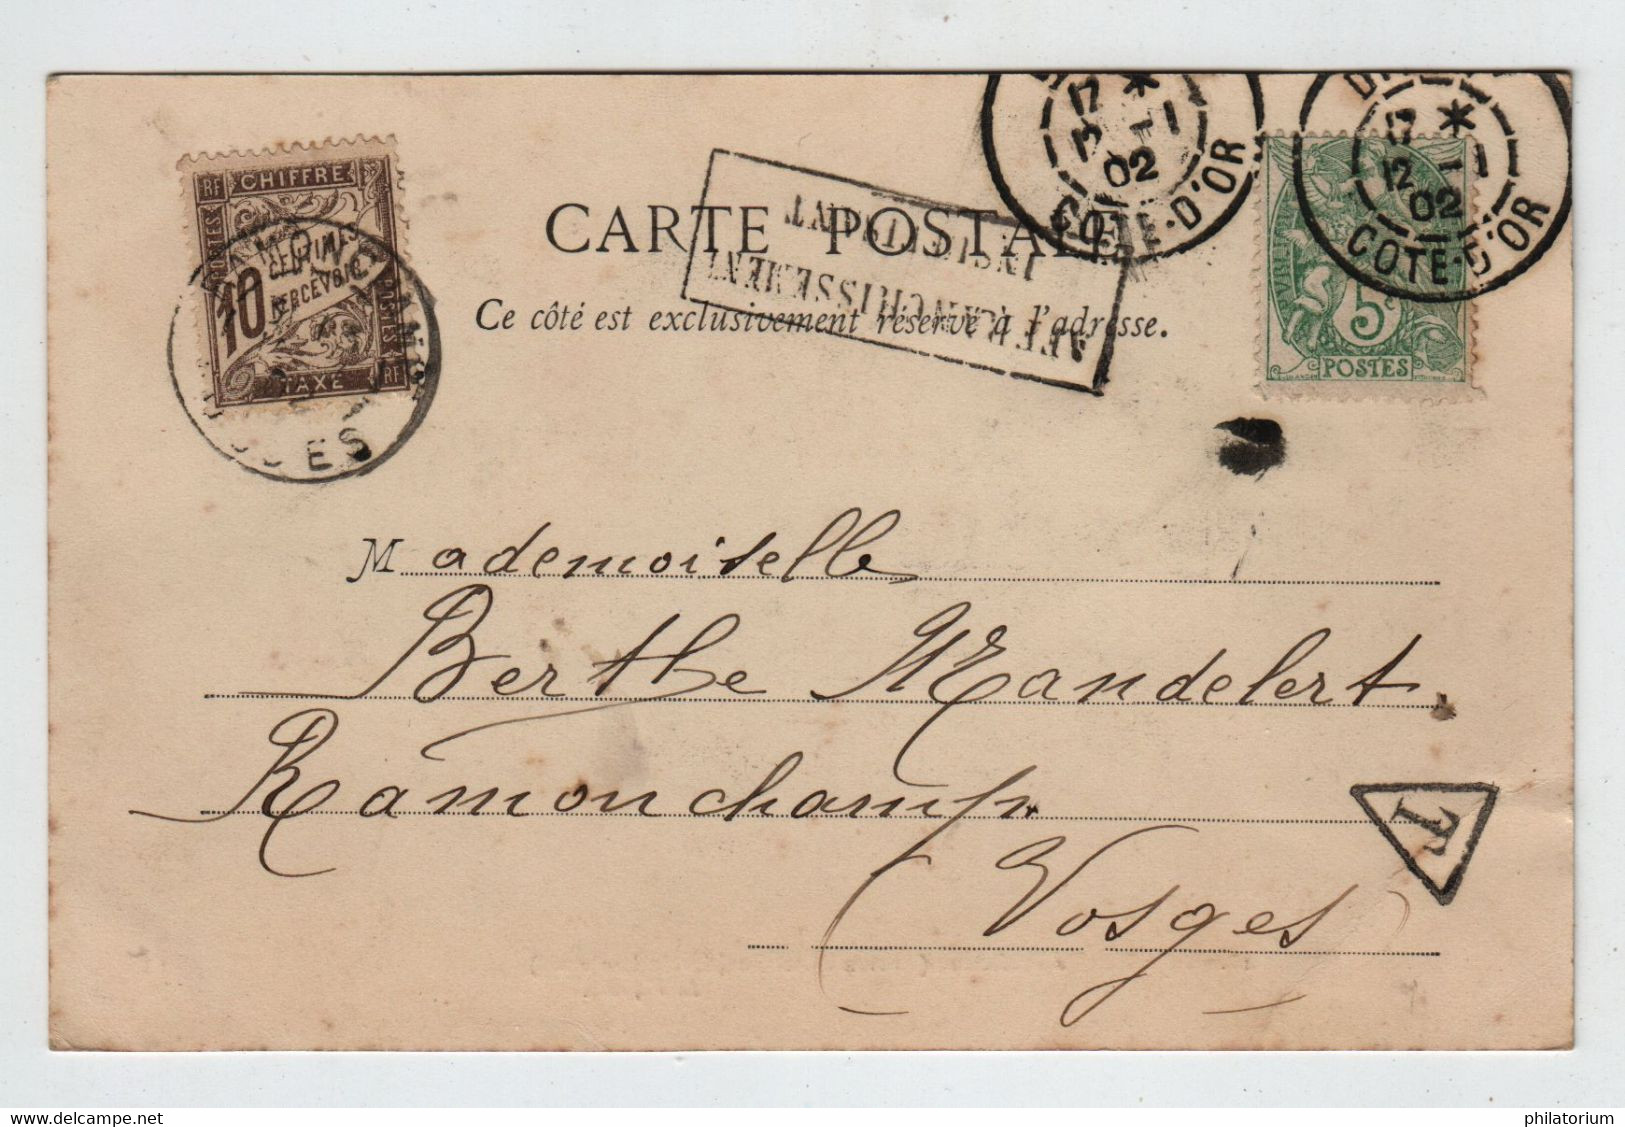 RF CHIFFRE
POSTES
10 CENTIMES
A PERCEVOIR
POSTES
TAXE RF
CARTE POSTALE
Ce côté est exclusivement réservé à l'adresse.
AFFRANCHISSEMENT
INSUFFISANT
17 *
02
COTE-D'OR
17 *
12 1
02
COTE-D'OR
5c
POSTES
Mademoiselle
Berthe Mandelert
Ramonchamp
(Vosges)
T
delcampe.net
philatorium